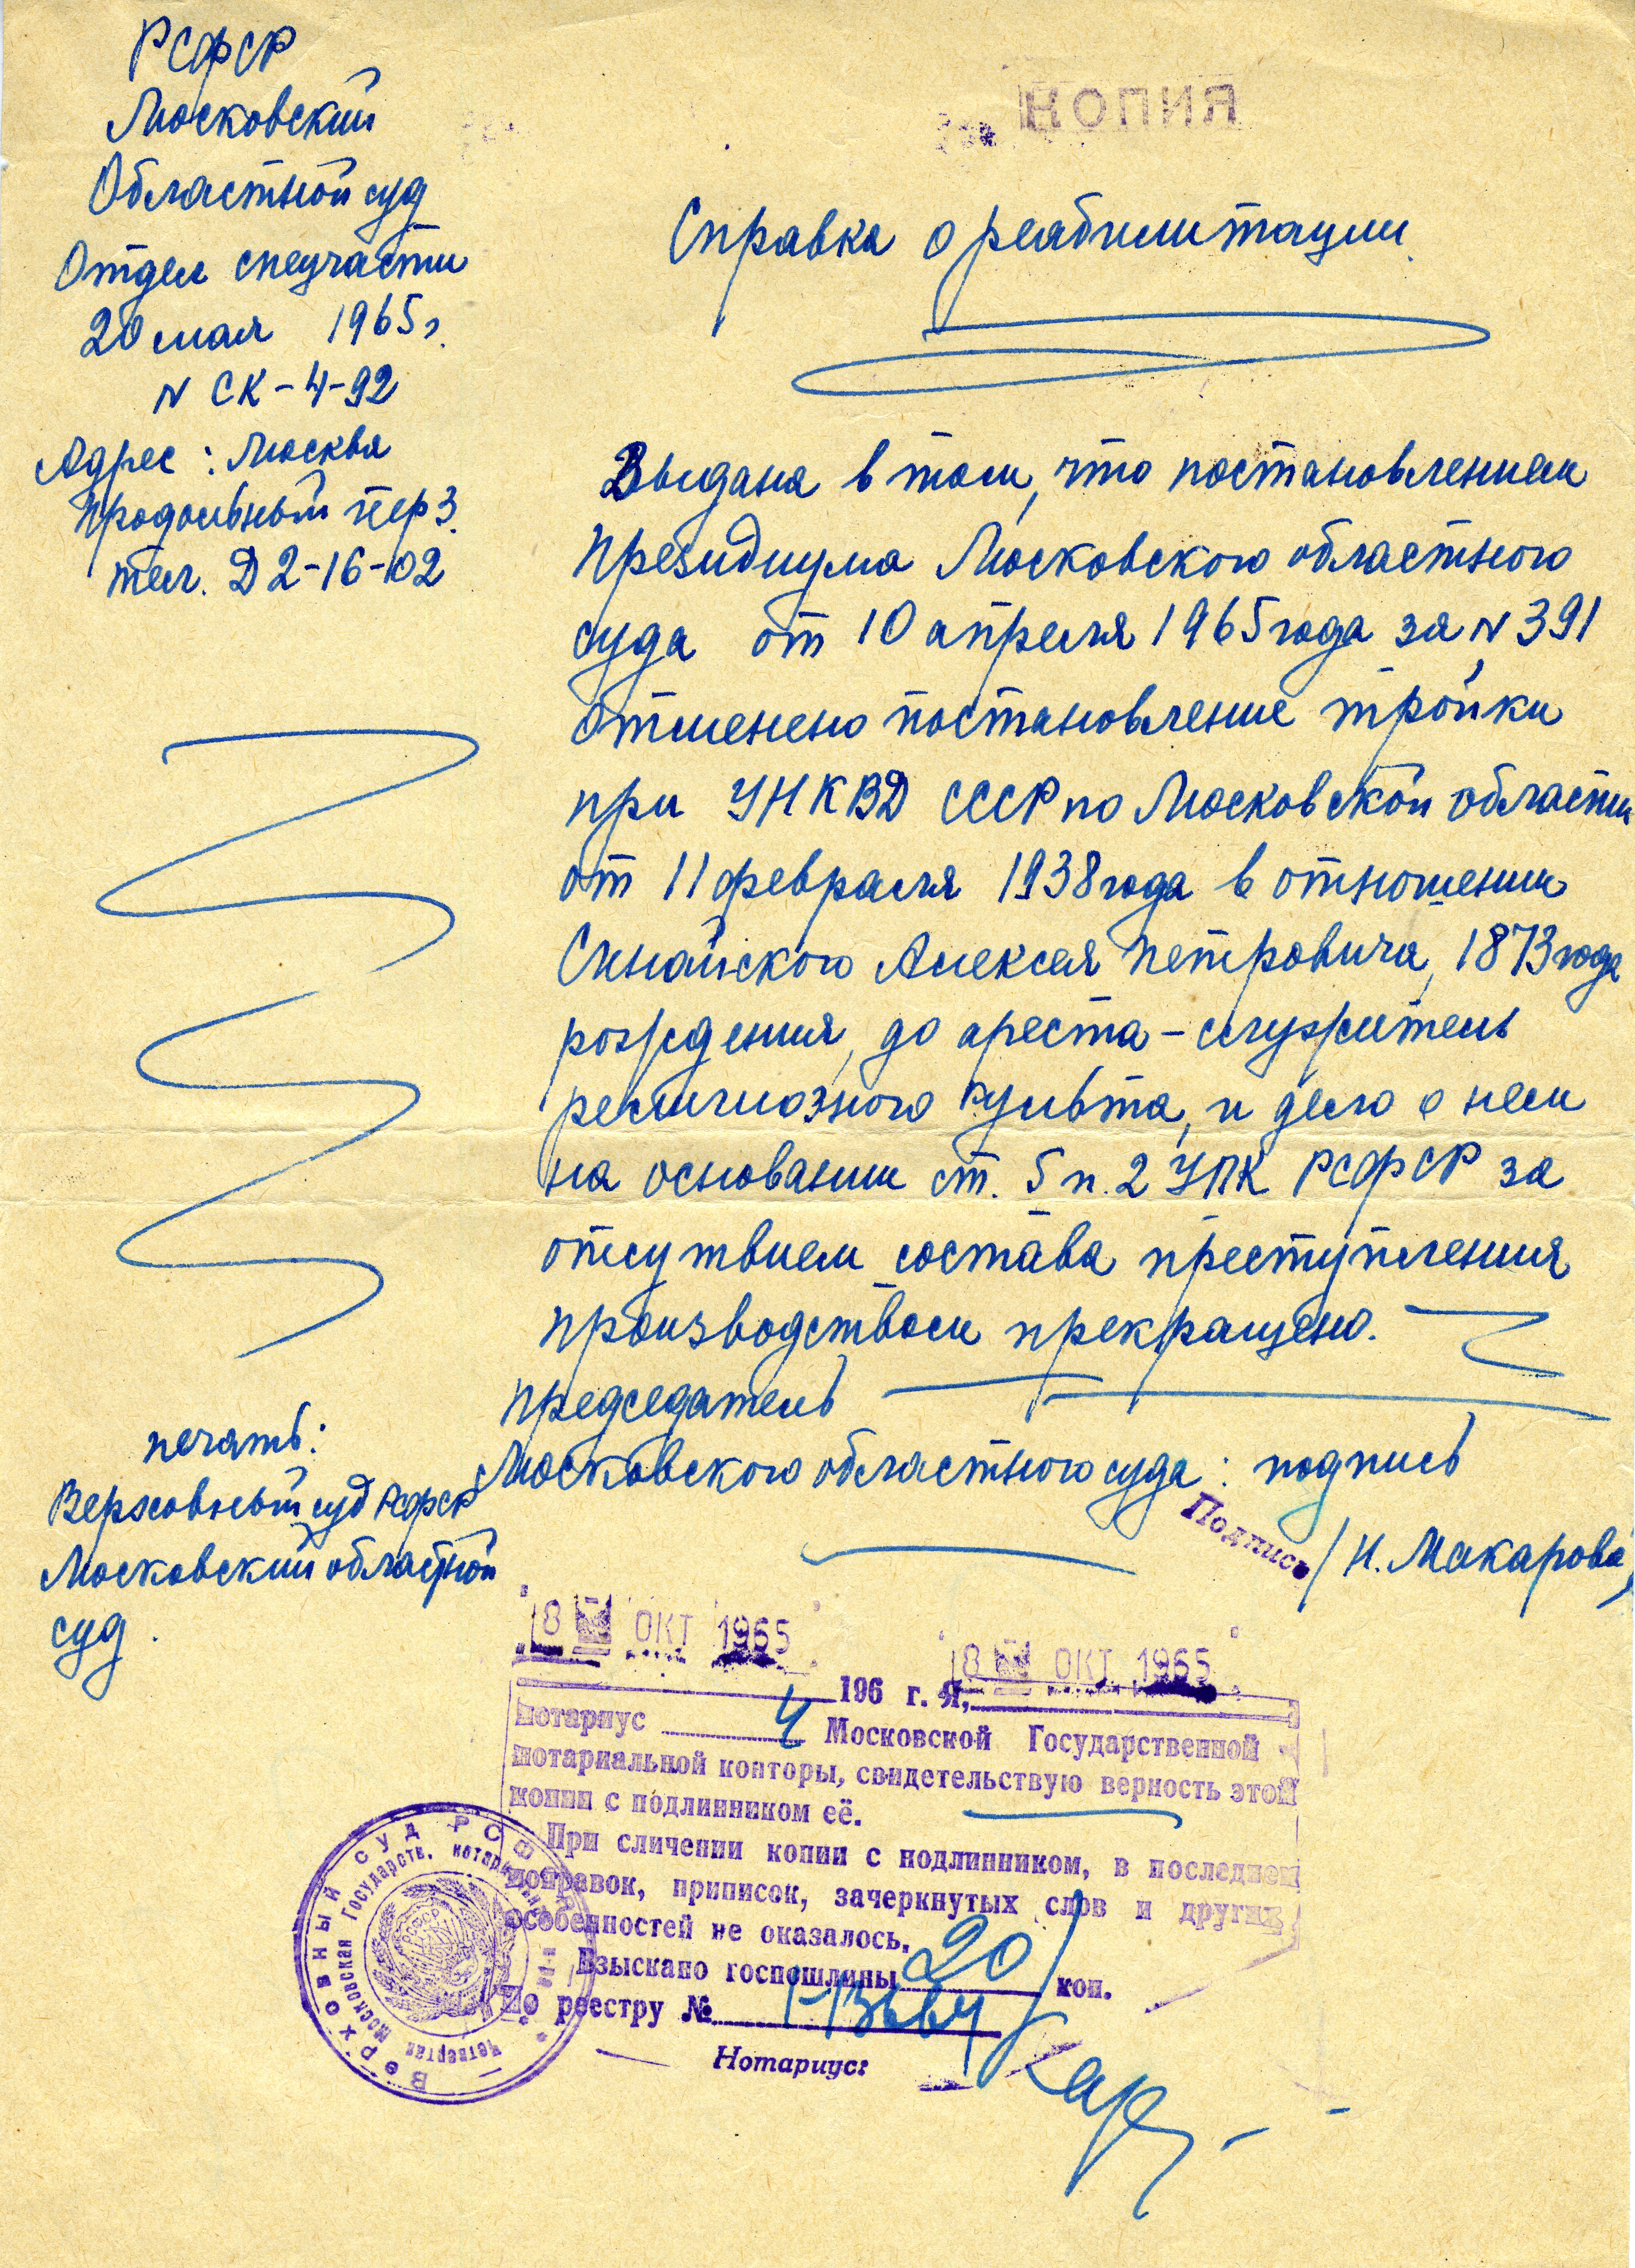 РСФСР
Московский
Областной суд
Отдел спецчасти
20 мая 1965 г.
N СК-4-92
Адрес: Москва
Продольный пер 3.
тел. Д 2-16-02
КОПИЯ
Справка о реабилитации.
Выдана в том, что постановлением
Президиума Московского областного
суда от 10 апреля 1965 года за N 391
отменено постановление тройки
при УНКВД СССР по Московской области
от 11 февраля 1938 года в отношении
Синайского Алексея Петровича, 1873 года
рождения, до ареста - служитель
религиозного культа, и дело о нем
на основании ст. 5 п. 2 УПК РСФСР за
отсутвием состава преступления
производством прекращено.
Председатель
Московского областного суда: подпись
Подпись
/Н. Макарова/
печать:
Верховный суд РСФСР
Московский областной
суд.
18 ОКТ 1965
18 ОКТ 1965
196 г. Я,
нотариус 4 Московской Государственной
нотариальной конторы, свидетельствую верность этой
копии с подлинником её.
При сличении копии с подлинником, в последнем
поправок, приписок, зачеркнутых слов и других
особенностей не оказалось.
Взыскано госпошлины 20 коп.
По реестру №
Нотариус:
Верховный суд РСФСР
Четвертая Московская Государств. нотариальная